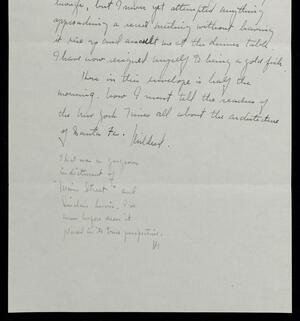 but I never yet attempted anything
approaching a secret anything without having
it rise up and assault us at the dinner table.
I have now resigned myself to being a gold fish.
Here in this envelope is half the
morning. Now I must tell the readers of
the New York Times all about the architecture
of Santa Fe. Mildred.
That was a gorgeous
indictment of
"Main Street" and
Sinclair Lewis. I've
never before seen it
placed in its true perspective.
M